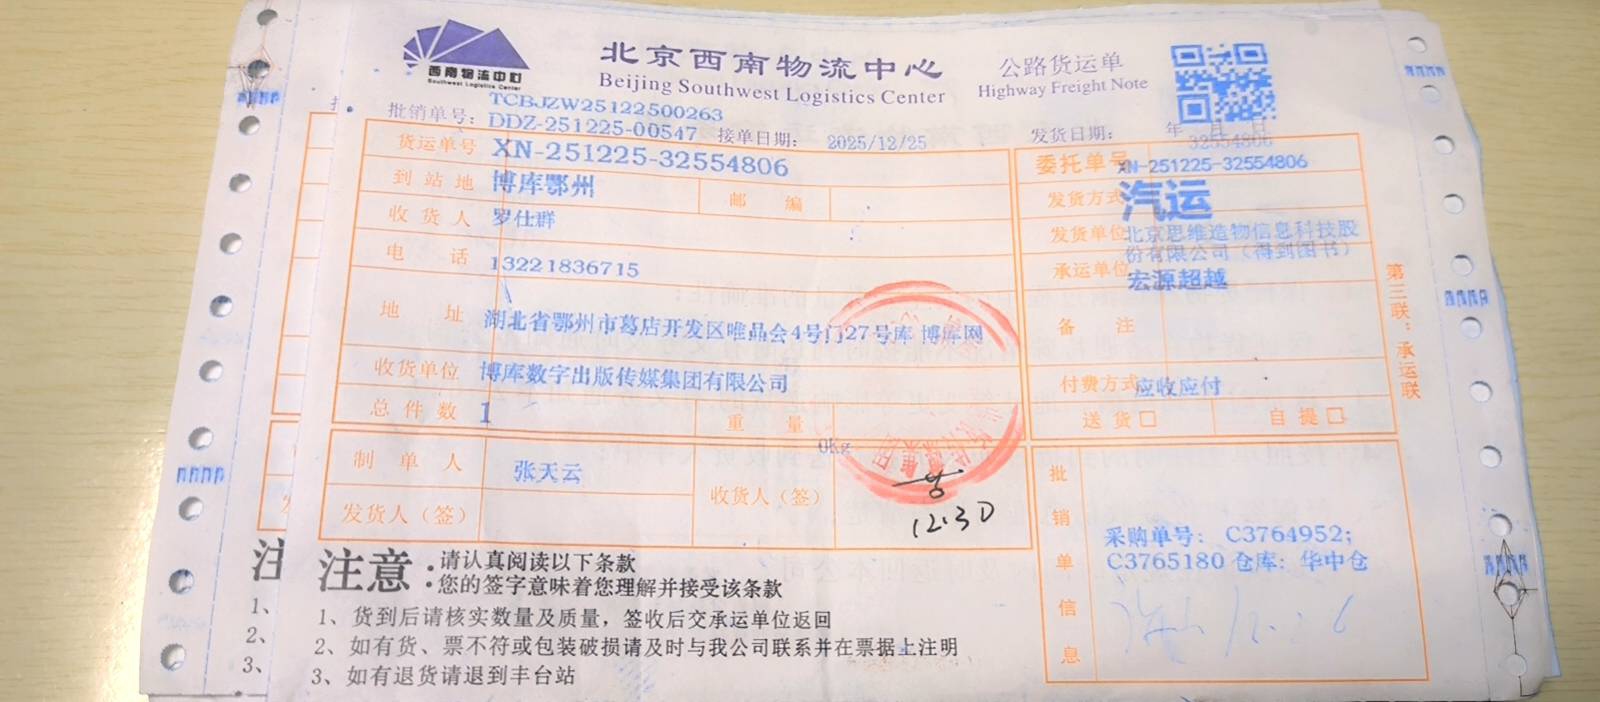 西南物流中心
Southwest Logistics Center
北京西南物流中心
Beijing Southwest Logistics Center
公路货运单
Highway Freight Note
TCBJZW25122500263
批销单号: DDZ-251225-00547 接单日期: 2025/12/25 发货日期: 年 月 日
32554806
货运单号 XN-251225-32554806 委托单号 XN-251225-32554806
到站地 博库鄂州 邮编 发货方式 汽运
收货人 罗仕群 发货单位 北京思维造物信息科技股份有限公司（得到图书）
电话 13221836715 承运单位 宏源超越
地址 湖北省鄂州市葛店开发区唯品会4号门27号库 博库网 备注
收货单位 博库数字出版传媒集团有限公司 付费方式 应收应付
总件数 1 重量 0kg 送货□ 自提□
制单人 张天云 收货人（签）
发货人（签）
12.30
批销单信息
采购单号: C3764952;
C3765180 仓库: 华中仓
第三联：承运联
注意:
请认真阅读以下条款
您的签字意味着您理解并接受该条款
1、货到后请核实数量及质量，签收后交承运单位返回
2、如有货、票不符或包装破损请及时与我公司联系并在票据上注明
3、如有退货请退到丰台站
注
1、
2、
3、